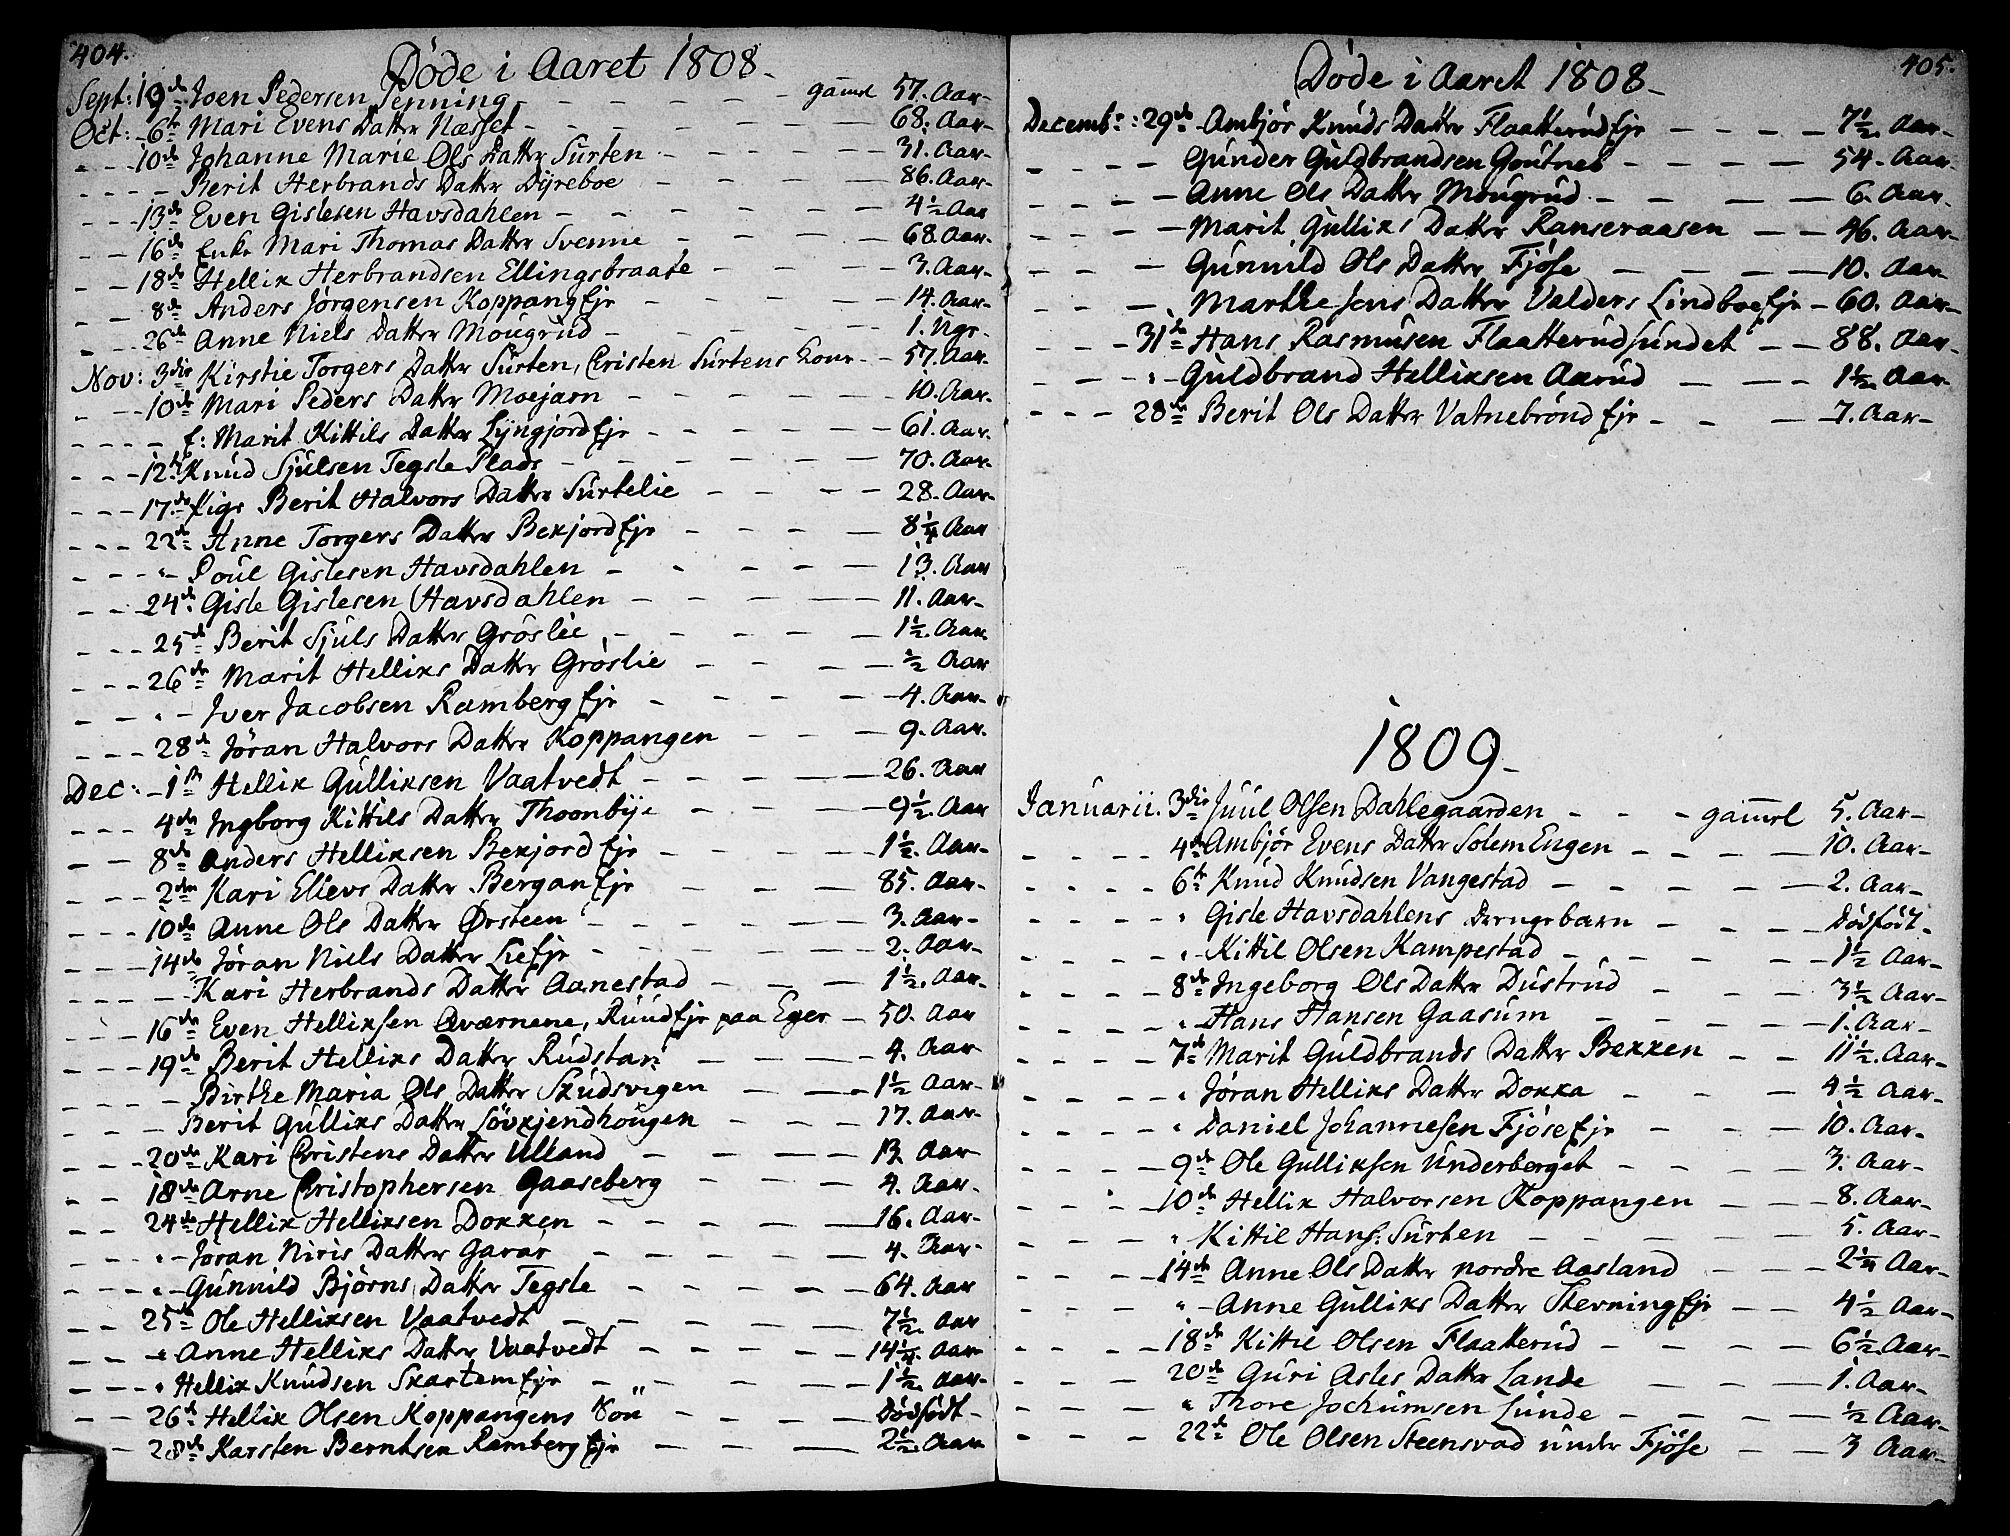 404.
Döde i Aaret 1808.
Sept: 19de Joen Pedersen Penning - - - - - - gamel 57. Aar-
Oct: - 6te Mari Evens Datter Næsset - - - - - - 68. Aar-
- - - 10de Johanne Marie Ols Datter Surten - - - - - 31. Aar-
- - - - Berit Herbrands Datter Dÿreboe - - - - - 86. Aar-
- - - 13de Even Gislesen Havsdahlen - - - - - - 4 1/2 Aar
- - 16de Enke Mari Thomas Datter Svenne - - - - 68. Aar-
- - 18de Hellik Herbrandsen Ellingsbraate - - - - 3. Aar-
- - 8de Anders Jörgensen Koppang Ejr - - - - - 14. Aar-
- - 26de Anne Niels Datter Mougrud - - - - - 1. Uge-
Nov: 3die Kirstie Torgers Datter Surten, Cristen Surtens Kone - - 57. Aar-
- - 10de Mari Peders Datter Moejarn - - - - - 10. Aar-
- - - - f: Marit Kittils Datter Lÿngjord Ejr - - - - - 61. Aar-
- - - 12te Knud Sjulsen Tegsle Plads - - - - - - 70. Aar-
- - - 17de Pige Berit Halvors Datter Surtelie - - - - 28. Aar-
- - - 22de Anne Torgers Datter Bekjord Ejr - - - - 8 1/4 Aar
- - - " - Poul Gislesen Havsdahlen - - - - - 13. Aar
- - - 24de Gisle Gislesen Havsdahlen - - - - - 11. Aar-
- - - 25de Berit Sjuls Datter Gröslie - - - - - 1 1/2. Aar
- - - 26de Marit Helliks Datter Gröslie - - - - 1/2 Aar
- - " - Iver Jacobsen Ramberg Ejr - - - - 4. Aar-
- - - 28de Jöran Halvors Datter Koppangen - - - 9. Aar.
Dec: - 1ste Hellik Gulliksen Vaatvedt - - - - - 26. Aar
- - - 4de Ingborg Kittils Datter Thoonbÿe - - - - 9 1/2. Aar
- - 8de Anders Helliksen Bekjord Ejr - - - - 1 1/2. Aar-
- - - 2den Kari Elievs Datter Bergan Ejr - - - 85. Aar-
- - - 10de Anne Ols Datter Örsteen - - - - - 3. Aar-
- - - 14de Jöran Niels Datter Lie Ejr - - - - - 2. Aar-
- - - - Kari Herbrands Datter Aanestad - - - 1 1/2. Aar-
- - - 16de Even Helliksen Qværnene, Ruud Ejr paa Eger - 50. Aar
- - - 19de Berit Helliks Datter Rudstan - - - 4. Aar
- - - - Birthe Maria Ols Datter Skudsvigen - - - 1 1/2 Aar-
- - - - Berit Gulliks Datter Sövkjendhougen - - - 17. Aar-
- - - 20de Kari Cristens Datter Ulland - - - - 13. Aar
- - 18de Arne Cristophersen Gaaseberg - - - - 4. Aar-
- - 24de Hellik Helliksen Dokken - - - - - 16. Aar-
- - - " - Jöran Niris Datter Garar - - - - 4. Aar-
- - - " - Gunnild Björns Datter Tegsle - - - - - 64. Aar
- - 25de Ole Helliksen Vaatvedt - - - - - 7 1/2. Aar
- - - " Anne Helliks Datter Vaatvedt - - - - 14 1/4. Aar
- - - " Hellik Knudsen Skartem Ejr - - - - - 1 1/2. Aar-
- - 26de Hellik Olsen Koppangens Son - - - - Dödfödt-
- 28de Karsten Berntsen Ramberg Ejr - - - - 2 1/2. Aar
405.
Döde i Aaret 1808-
Decembr: 29de Ambjör Knuds Datter Flaatterud Ejr - - - - 7 1/2. Aar-
- - - - Gunder Guldbrandsen Goutneb - - - - 54. Aar-
- - - - Anne Ols Datter Mougrud - - - - 6. Aar-
- - - - Marit Gulliks Datter Ranseraasen - - 46. Aar-
- - - - Gunnild Ols Datter Fjöse - - - - 10. Aar
- - - - Marthe Jens Datter Valders Lindboe Ejr - 60. Aar-
- - - 31te Hans Rasmusen Flaatterudsundet - - 88. Aar-
- - - " - Guldbrand Helliksen Aarud - - - 1 1/2. Aar-
- - - 28de Berit Ols Datter Vatnebrönd Ejr - - - 7. Aar-
1809-
Januarii. 3die Juul Olsen Dahlegaarden - - - gamel 5. Aar-
- - - - 4de Ambjör Evens Datter Solem Engen - - - - 10. Aar-
- - - - 6te Knud Knudsen Vangestad - - - - - 2. Aar-
- - - - " Gisle Havsdahlens Drengebarn - - - - Dödfödt-
- - - - " - Kittil Olsen Kampestad - - - - - 1 1/2 Aar-
- - - - 8de Ingeborg Ols Datter Dustrud - - - - 3 1/2 Aar-
- - - - " - Hans Hansen Gaasum - - - - - 1. Aar-
- - - - 7de Marit Guldbrands Datter Bekken - - 11 1/2. Aar-
- - - - " Jöran Helliks Datter Dokka - - - 4 1/2 Aar-
- - - - " Daniel Johannesen Fjöse Ejr - - - 10. Aar-
- - - - 9de Ole Gulliksen Underberget - - - - 3. Aar-
- - - 10de Hellik Halvorsen Koppangen - - - 8. Aar-
- - - - " Kittil Hans: Surten - - - - - - 5. Aar-
- - - - 14de Anne Ols Datter nordre Aasland - - - 2 1/4 Aar-
- - - - " - Anne Gulliks Datter Sterning Ejr - - 4 1/2 Aar-
- - - - 18de Kittil Olsen Flaatterud - - - - 6 1/2. Aar-
- - - - 20de Guri Asles Datter Lande - - - 1. Aar-
- - - - " Thore Jochumsen Lunde - - - - 1/2 Aar-
- - - 22de Ole Olsen Steensrad under Fjöse - - 3 Aar-